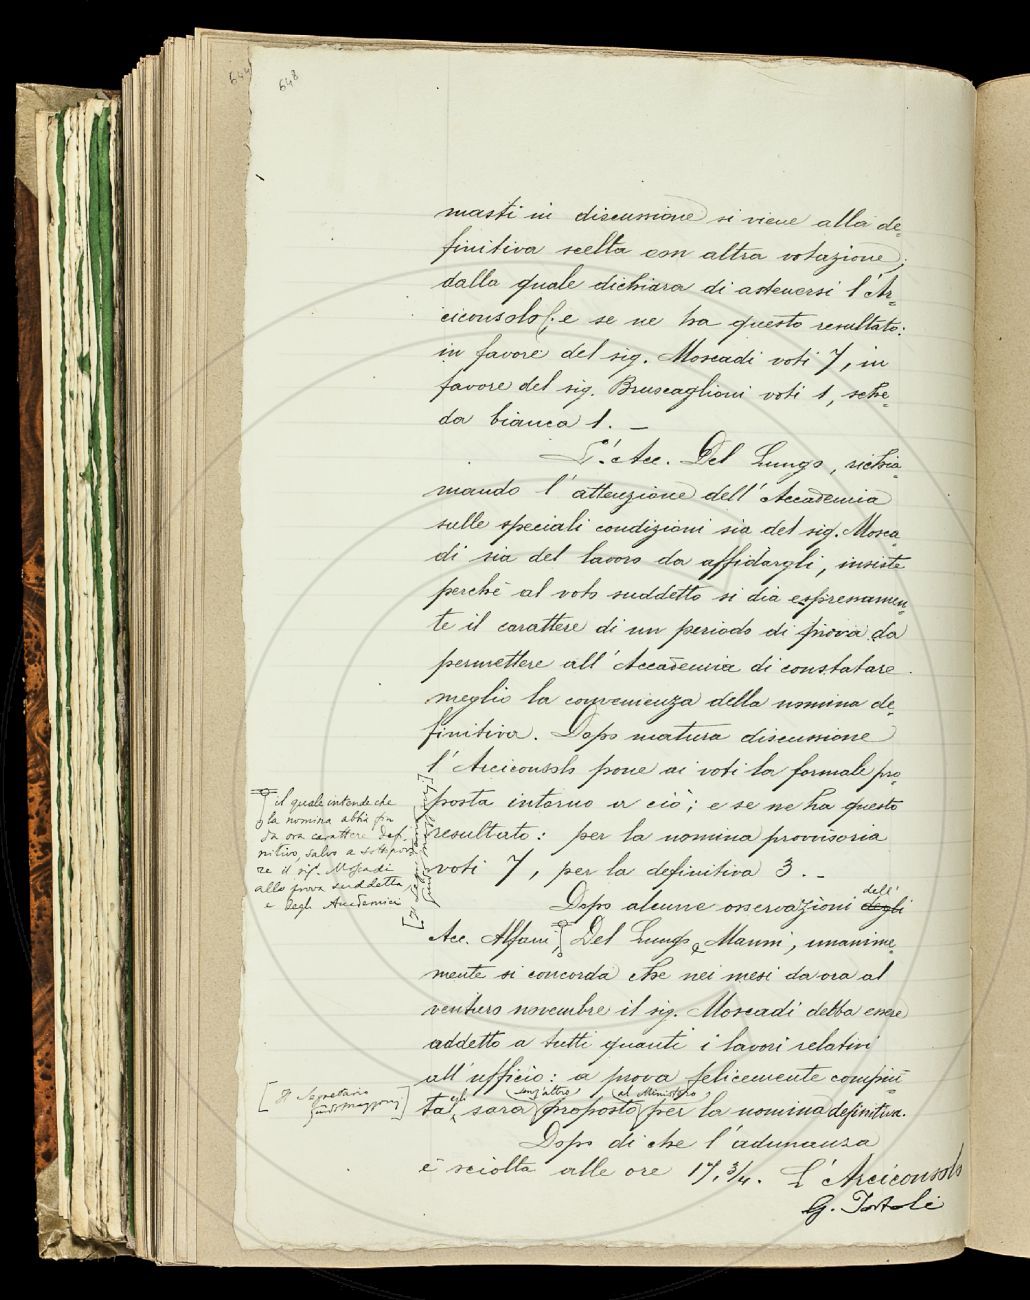 644
648
masti in discussione si viene alla de=
finitiva scelta con altra votazione,
dalla quale dichiara di astenersi l'Ar=
ciconsolo; e se ne ha questo resultato:
in favore del sig. Moscadi voti 7, in
favore del sig. Bruscaglioni voti 1, sche=
da bianca 1. –
L'Acc. Del Lungo, richia=
mando l'attenzione dell'Accademia
sulle speciali condizioni sia del sig. Mosca=
di sia del lavoro da affidargli, insiste
perchè al voto suddetto si dia espressamen=
te il carattere di un periodo di prova da
permettere all'Accademia di constatare
meglio la convenienza della nomina de=
finitiva. Dopo matura discussione
l'Arciconsolo pone ai voti la formale pro=
posta intorno a ciò; e se ne ha questo
resultato: per la nomina provvisoria
voti 7, per la definitiva 3. –
Dopo alcune osservazioni degli dell'
Acc. Alfani, Del Lungo e Manni, unanime=
mente si concorda che nei mesi da ora al
venturo novembre il sig. Moscadi debba essere
addetto a tutti quanti i lavori relativi
all'ufficio: a prova felicemente compiu=
ta, egli sarà senz'altro proposto al Ministero per la nomina definitiva.
Dopo di che l'adunanza
è sciolta alle ore 17, 3/4. L'Arciconsolo
G. Tortoli
il quale intende che
la nomina abbia fin
da ora carattere defi
nitivo, salvo a sottopor
re il sig. Moscadi
alla prova suddetta,
e degli Accademici
[Il Segretario
Guido Mazzoni]
[Il Segretario
Guido Mazzoni]